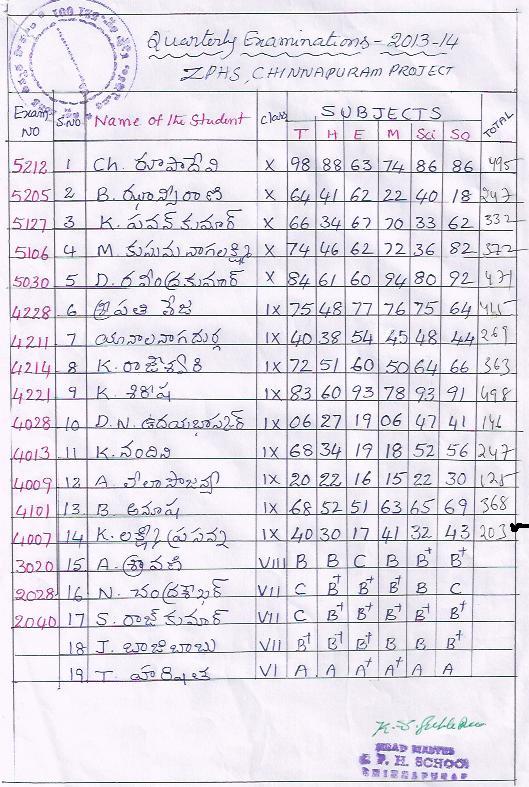 Quarterly Examinations - 2013-14
ZPHS, CHINNAPURAM PROJECT
Exam NO S.NO Name of the Student class SUBJECTS TOTAL
T H E M Sci SO
5212 1 Ch. రూపాదేవి X 98 88 63 74 86 86 495
5205 2 B. ఝాన్సీరాణి X 64 41 62 22 40 18 247
5127 3 K. పవన్ కుమార్ X 66 34 67 70 33 62 332
5106 4 M. కుసుమ నాగలక్ష్మి X 74 46 62 72 36 82 372
5030 5 D. రవీంద్రకుమార్ X 84 61 60 94 80 92 471
4228 6 తేజ IX 75 48 77 76 75 64
4211 7 యానాలనాగదుర్గ IX 40 38 54 45 48 44 269
4214 8 K. రాజేశ్వరి IX 72 51 60 50 64 66 363
4221 9 K. శిరీష IX 83 60 93 78 93 91 498
4028 10 D.N. ఉదయభాస్కర్ IX 06 27 19 06 47 41 146
4013 11 K. నందిని IX 68 34 19 18 52 56 247
4009 12 A. IX 20 22 16 15 22 30 125
4101 13 B. అనూష IX 68 52 51 63 65 69 368
4007 14 K. లక్ష్మీ ప్రసన్న IX 40 30 17 41 32 43 203
3020 15 A. శ్రావణి VIII B B C B B+ B+
2028 16 N. చంద్రశేఖర్ VII C B+ B+ B+ B C
2040 17 S. రాజ్ కుమార్ VII C B+ B+ B+ B+ B+
18 J. బాజిబాబు VII B+ B+ B+ B B B+
19 T. హారిషిత VI A A A+ A+ A A
HEAD MASTER
Z P. H. SCHOOL
CHINNAPURAM